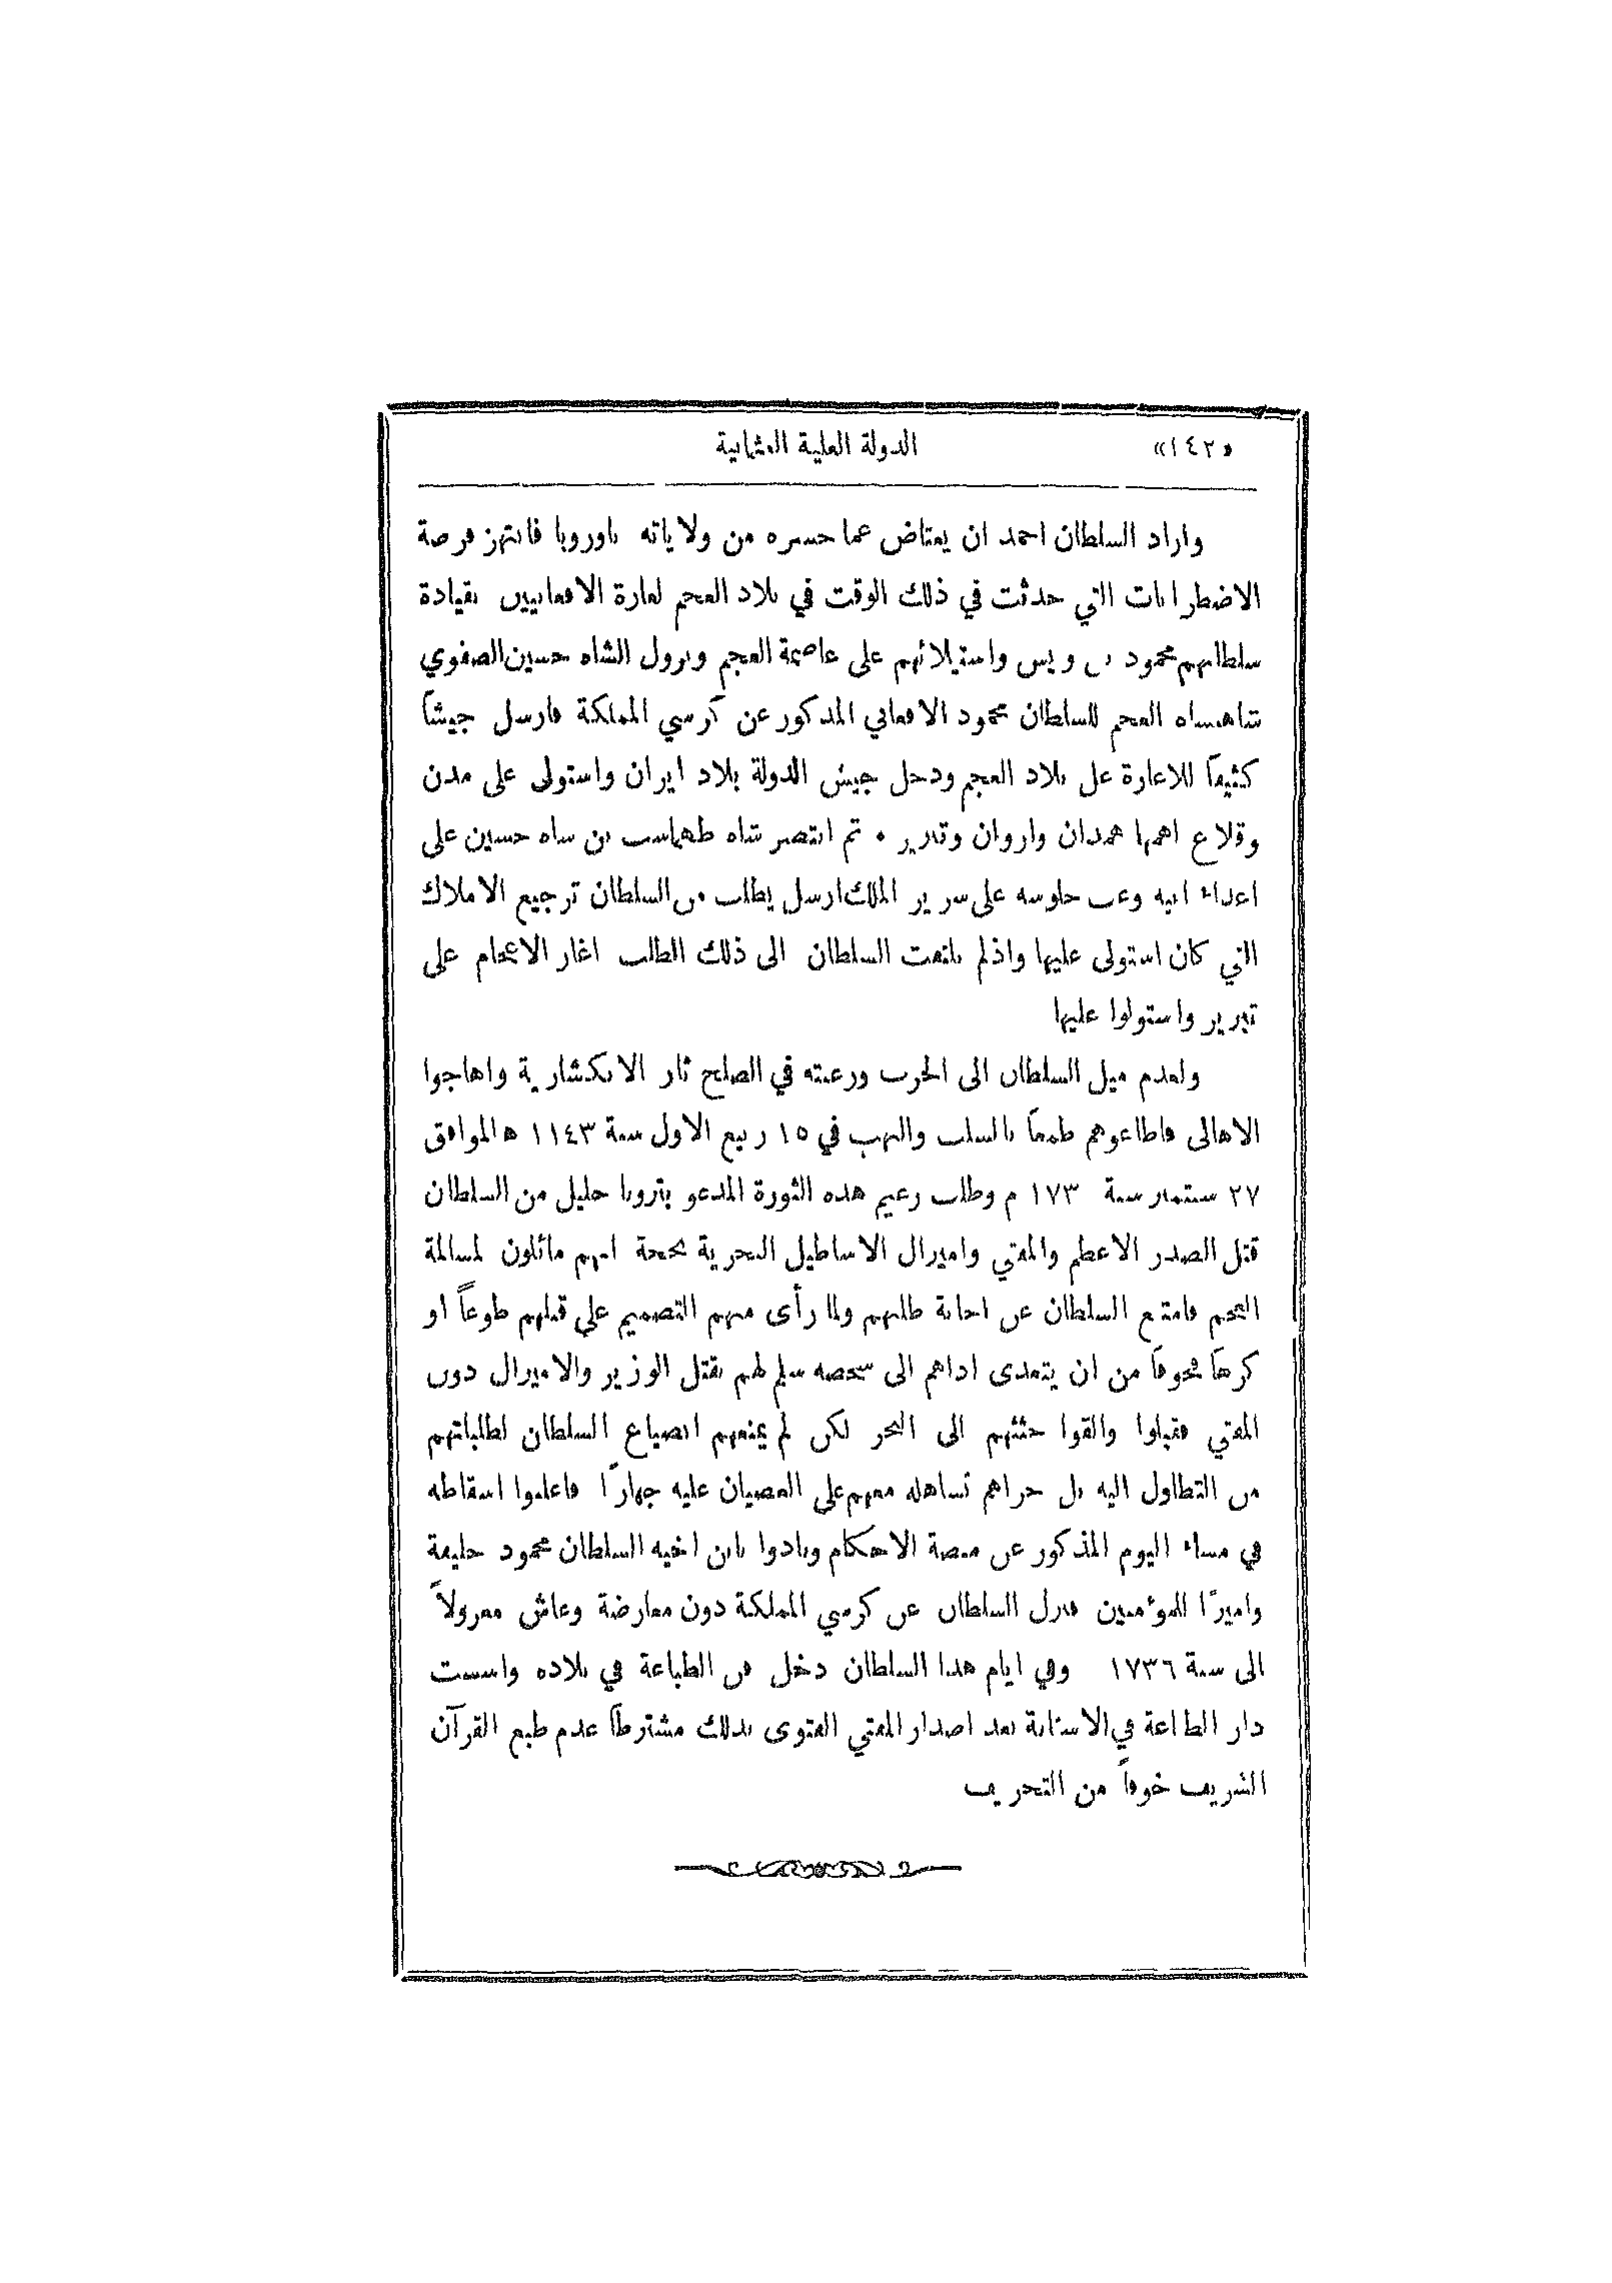 «١٤٢» الدولة العلية العثمانية
واراد السلطان احمد ان يعتاض عما خسره من ولاياته باوروبا فانتهز فرصة
الاضطرابات التي حدثت في ذلك الوقت في بلاد العجم لغارة الافغانيين بقيادة
سلطانهم محمود بن ويس واستيلائهم على عاصمة العجم ونزول الشاه حسين الصفوي
شاهنشاه العجم للسلطان محمود الافغاني المذكور عن كرسي المملكة فارسل جيشاً
كثيفاً للاغارة على بلاد العجم ودخل جيش الدولة بلاد ايران واستولى على مدن
وقلاع اهمها همدان واروان وتبريز ٠ ثم انتصر شاه طهماسب بن شاه حسين على
اعداء ابيه وعب جلوسه على سرير الملك ارسل يطلب من السلطان ترجيع الاملاك
التي كان استولى عليها واذلم يلتفت السلطان الى ذلك الطلب اغار الاعجام على
تبريز واستولوا عليها
ولعدم ميل السلطان الى الحرب ورغبته في الصلح ثار الانكشارية واهاجوا
الاهالى فاطاعوهم طمعاً بالسلب والنهب في ١٥ ربيع الاول سنة ١١٤٣ ه الموافق
٢٧ سبتمبر سنة ١٧٣ م وطلب زعيم هذه الثورة المدعو بترونا خليل من السلطان
قتل الصدر الاعظم والمفتي واميرال الاساطيل البحرية بحجة انهم مائلون لمسالمة
العجم فامتنع السلطان عن اجابة طلبهم ولما رأى منهم التصميم على قتلهم طوعاً او
كرهاً فخوفاً من ان يتعدى اذاهم الى شخصه سلم لهم بقتل الوزير والاميرال دون
المفتي فقبلوا والقوا جثثهم الى البحر لكن لم يمنعهم انصياع السلطان لطلباتهم
من التطاول اليه بل جراهم تساهله معهم على العصيان عليه جهارًا فاعلنوا اسقاطه
في مساء اليوم المذكور عن منصة الاحكام ونادوا بابن اخيه السلطان محمود خليفة
واميرًا للمؤمنين فنزل السلطان عن كرسي المملكة دون معارضة وعاش معزولاً
الى سنة ١٧٣٦ وفي ايام هذا السلطان دخل فن الطباعة في بلاده واسست
دار الطباعة في الاستانة بعد اصدار المفتي الفتوى بذلك مشترطاً عدم طبع القرآن
الشريف خوفاً من التحريف